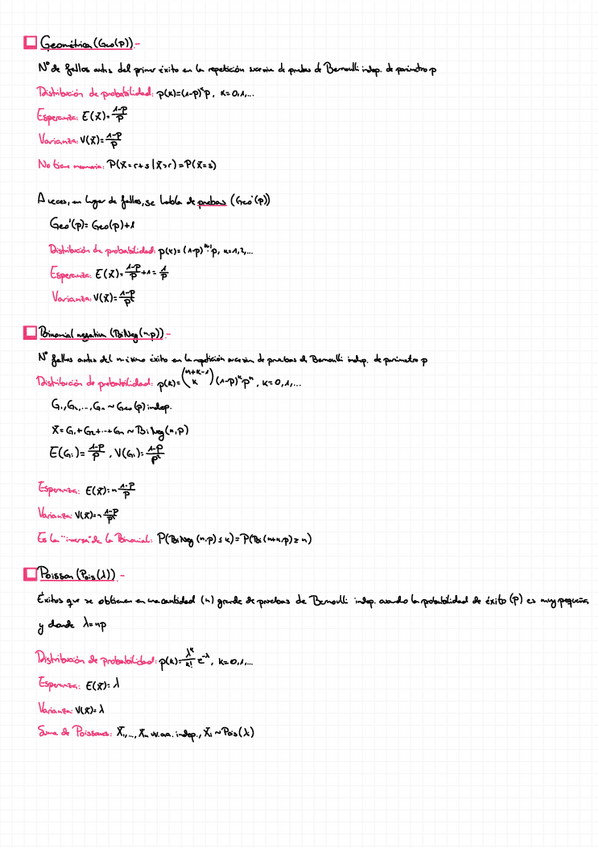 Geométrica (Geo(p)).-
Nº de fallos antes del primer éxito en la repetición sucesiva de pruebas de Bernoulli indep. de parámetro p
Distribución de probabilidad: p(k)=(1-p)^k p, k=0,1,...
Esperanza: E(X)=(1-p)/p
Varianza: V(X)=(1-p)/p
No tiene memoria: P(X=r+s|X>r)=P(X=s)
A veces, en lugar de fallos, se habla de pruebas (Geo'(p))
Geo'(p)=Geo(p)+1
Distribución de probabilidad: p(k)=(1-p)^{k-1} p, k=1,2,...
Esperanza: E(X)=(1-p)/p+1=1/p
Varianza: V(X)=(1-p)/p²
Binomial negativa (BiNeg(n,p)).-
Nº fallos antes del n-ésimo éxito en la repetición sucesiva de pruebas de Bernoulli indep. de parámetro p
Distribución de probabilidad: p(k)=(n+k-1 k)(1-p)^k p^n, k=0,1,...
G₁,G₂,...,Gₙ ~ Geo(p) indep.
X=G₁+G₂+...+Gₙ ~ BiNeg(n,p)
E(Gᵢ)=(1-p)/p, V(Gᵢ)=(1-p)/p²
Esperanza: E(X)=n (1-p)/p
Varianza: V(X)=n (1-p)/p²
Es la "inversa" de la Binomial: P(BiNeg(n,p)≤k)=P(Bi(n+k,p)≥n)
Poisson (Pois(λ)).-
Éxitos que se obtienen en una cantidad (n) grande de pruebas de Bernoulli indep. cuando la probabilidad de éxito (p) es muy pequeña,
y donde λ=np
Distribución de probabilidad: p(k)=λ^k/k! e^{-λ}, k=0,1,...
Esperanza: E(X)=λ
Varianza: V(X)=λ
Suma de Poissons: X₁,...,Xₙ vv.aa. indep., Xᵢ ~ Pois(λᵢ)